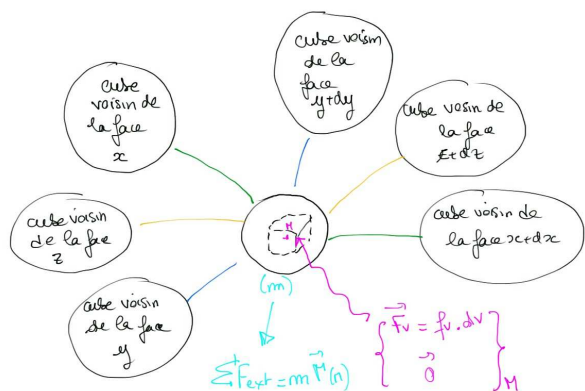 cube voisin
de la
face
y+dy
cube
voisin de
la face
x
cube voisin de
la face
z+dz
cube voisin
de la face
z
M
cube voisin de
la face x+dx
cube voisin
de la face
y
(m)
ΣF̄ext = m Γ⃗(n)
{ F⃗v = fv.dv
0⃗ }M